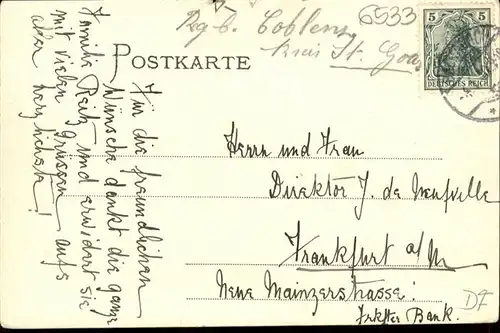 6533
Rgb. Coblenz
Kreis St. Goar
5 5
DEUTSCHES REICH
POSTKARTE
Für die freundlichen
Wünsche dankt die ganze
Familie Reitz und erwidert sie
mit vielen Grüssen aufs
aller herzlichste!
Herrn und Frau
Direktor J. de Neufville
Frankfurt a/M
Neue Mainzerstrasse!
Bank.
D7